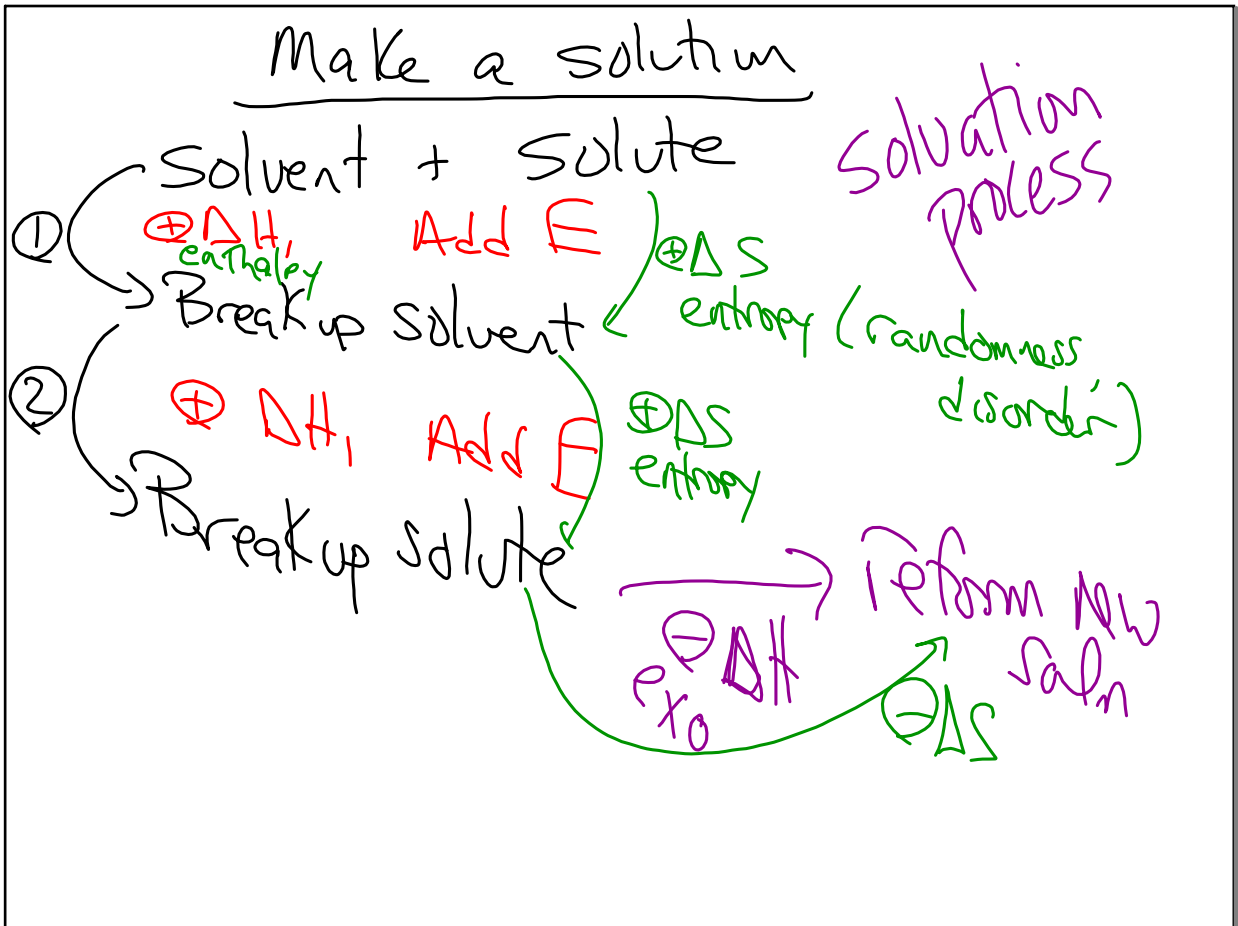 Make a solution
Solvent + Solute
Solvation
process
①
⊕ΔH,
Add E
enthalpy
⊕ΔS
entropy (randomness
disorder)
Breakup solvent
②
⊕ ΔH,
Add E
⊕ΔS
entropy
Breakup solute
reform new
soln
⊖ΔH
exo
⊖ΔS